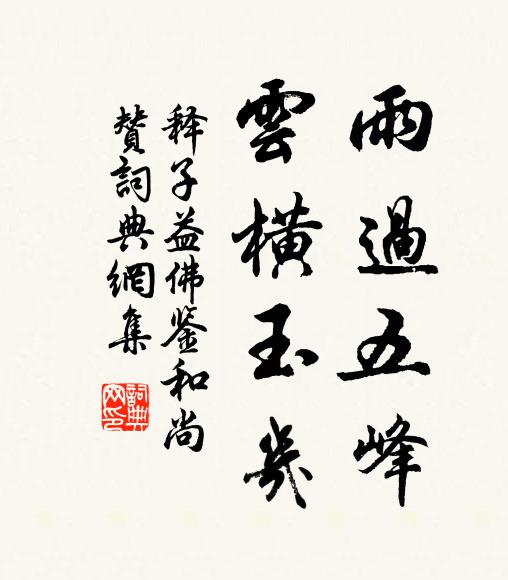 雨過五峰
雲橫玉幾
释子益佛鉴和尚
贊詞典網集
詞典網印